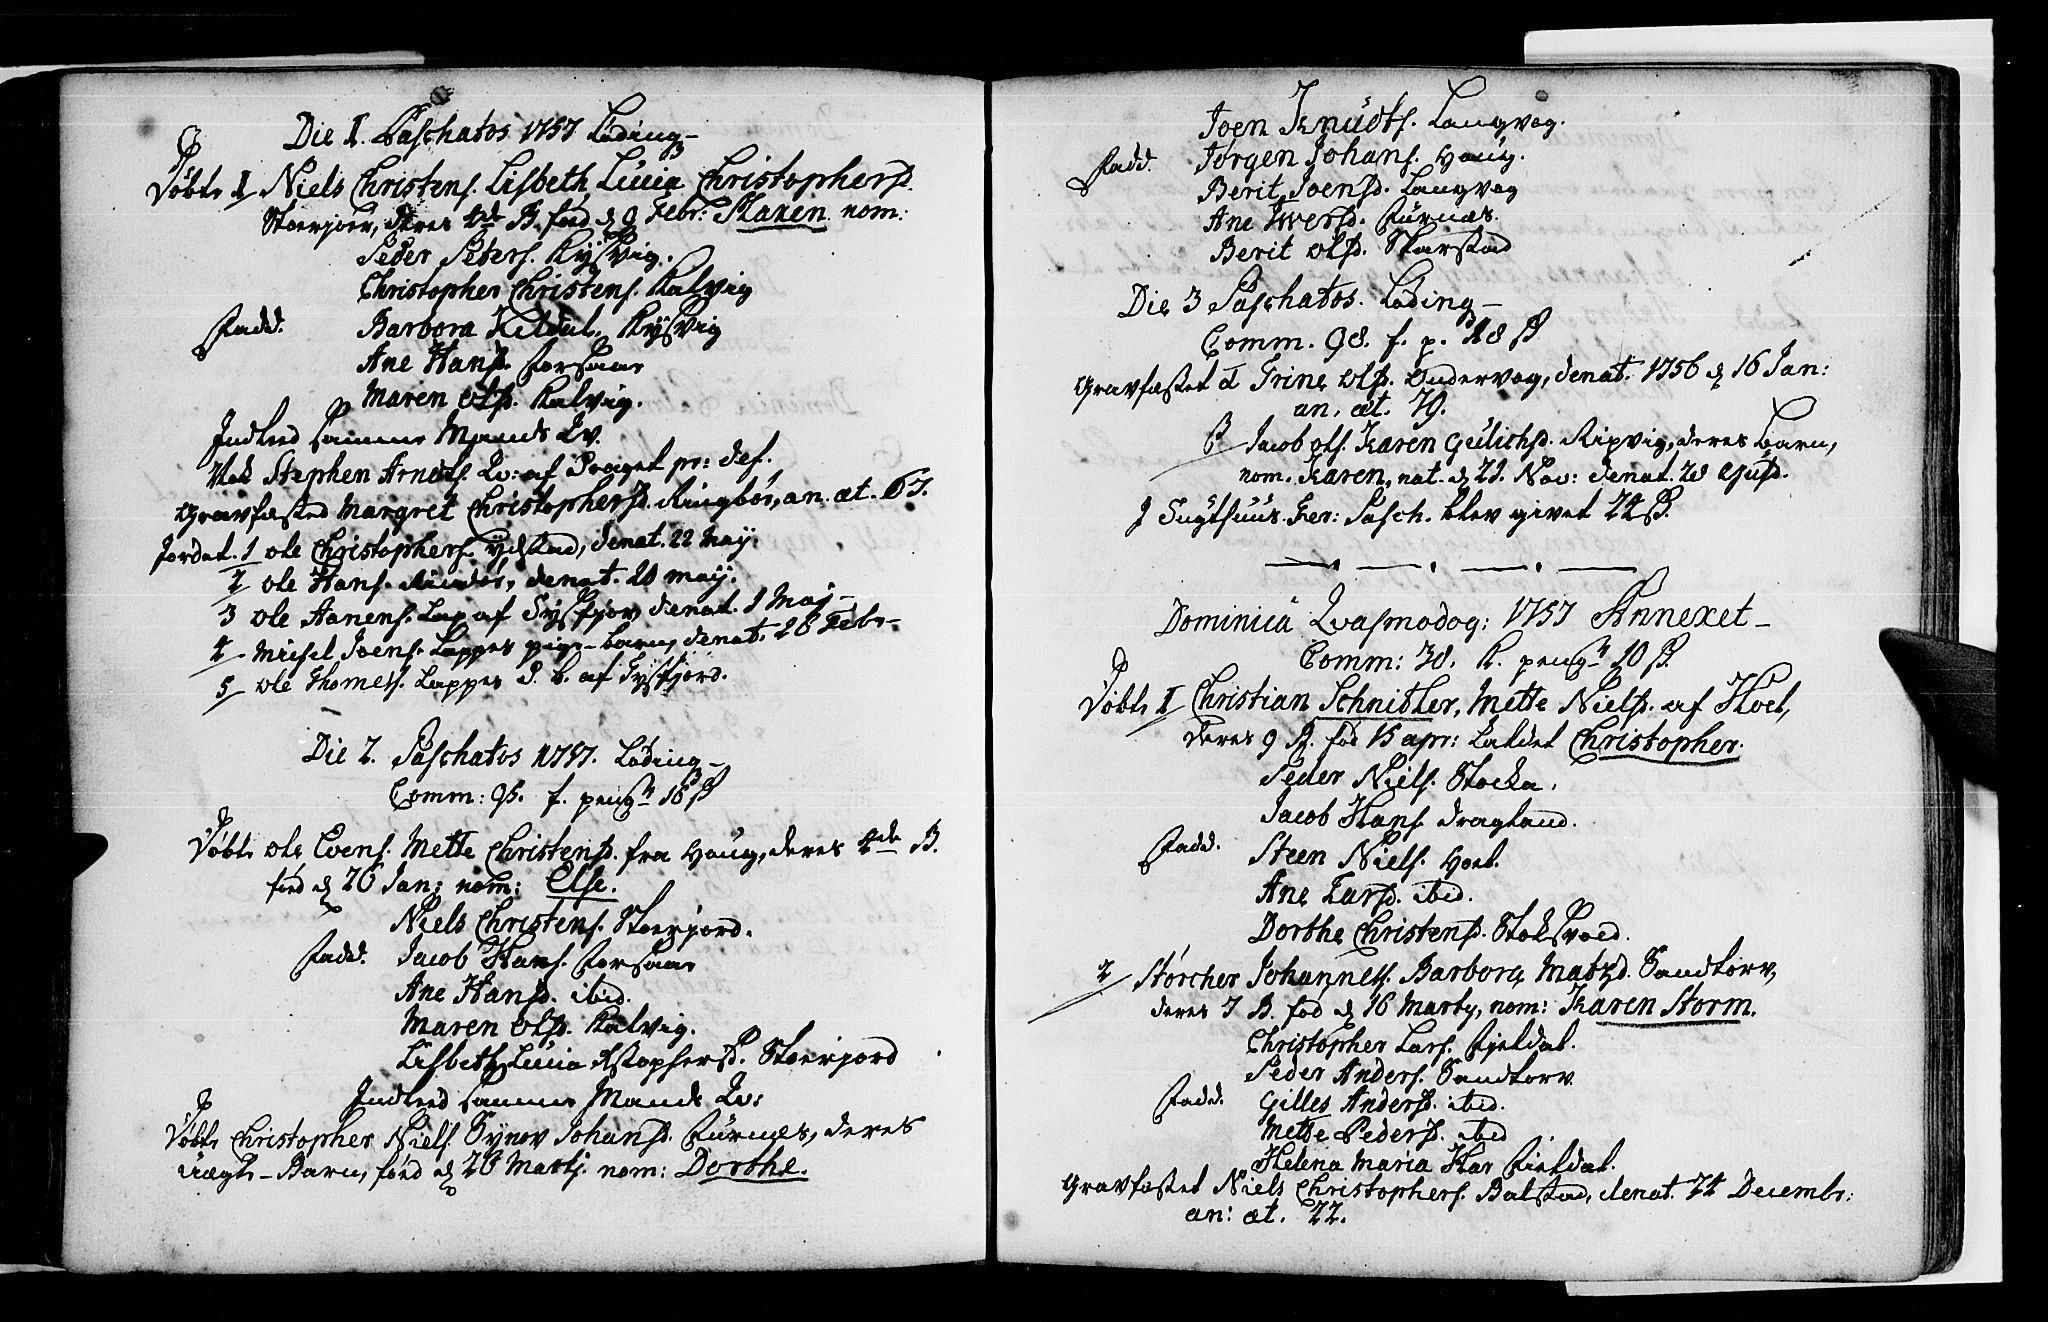 Die 1. Paschatos 1757 Löding
Döbt 1 Niels Christens. Lisbeth Lucia Christophersd.
Stoerjoer, deres 4de B. föd d 9 Febr: Maren nom:
Peder Peders. Kysvig.
Christopher Christens. Kalvig
Fadd. Barbora Heldal. Kysvig
Ane Hansd. Forsaae
Maren Olsd. Kalvig.
Indleed samme Mands Qv.
Item Stephen Arndts. Qv: af Præget pr: def.
Gravfæsted Margret Christophersd. Ringböe, an. æt. 67.
Jordet. 1 Ole Christophers. Ydstad, denat. 22 May.
2 Ole Hans. Rinöe, denat. 20 may.
3 Ole Aanens. Lap af Tysfjor denat. 1 Maj
4 Michel Joens. Lappes pige-barn, denat. 28 Febr
5 Ole Thomes. Lappes D. b. af Tysfjord.
Die 2. Paschatos 1757. Löding
Comm: 95. f. peng 16 ß
Döbt Ole Evens. Mette Christensd. fra Houg, deres 4de B.
föd d 26 Jan: nom: Else.
Niels Christens. Stoerjord.
Fadd. Jacob Hans. Forsaae
Ane Hansd. ibid.
Maren Olsd. Kalvig.
Lisbeth Lucia Xstophersd. Stoerjord
Indleed samme Mands Qv:
Döbt Christopher Niels. Synov Johansd. Furnes, deres
uægte-Barn, föd d 20 Martj. nom: Dorthe.
Joen Knudts. Langvog.
Fadd. Jørgen Johans. Houg.
Berit Joensd. Langvog
Ane Iversd. Furnæs.
Berit Olsd. Skarstad
Die 3 Paschatos. Löding
Comm. 98. f. p. 18 ß
Gravfæstet d Trine Olsd. Ondervog, denat. 1756 d 16 Jan:
an. æt. 79.
Jacob Ols. Karen Gulichsd. Ripvig, deres Barn,
nom. Karen, nat. d 29. Nov: denat. 28 ejusd.
I Sygthuus. Fer: Pasch. blev givet 24 ß.
Dominica Qvasmodog: 1757 Annexet
Comm: 38. K. peng 10 ß.
Döbt 1 Christian Schnitler, Mette Nielsd. af Hoel,
deres 9 B. föd 15 apr: kaldet Christopher.
Peder Niels. Stocka.
Jacob Hans. Dragland.
Fadd. Steen Niels. Hoel.
Ane Larsd. ibid.
Dorthe Christensd. Stoksvoed.
2 Störcher Johannes. Barbora Matzd. Sandtorv,
deres 7 B. föd d 16 Marty, nom: Karen Storm.
Christopher Lars. Fjeldal.
Peder Anders. Sandtorv
Fadd. Gilles Andersd. ibid.
Mette Pedersd. ibid
Helena Maria Har Fieldal.
Gravfæstet Niels Christophers. Balstad, denat. 24 Decembr:
an: æt. 22.